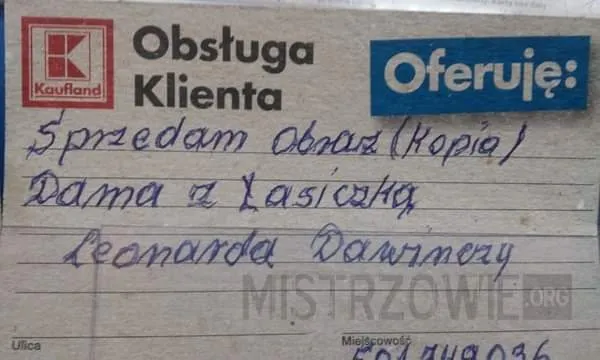 Kaufland
Obsługa
Klienta
Oferuję:
Sprzedam obraz (Kopia)
Dama z Łasiczką
Leonarda Dawinczy
MISTRZOWIE.ORG
Ulica
Miejscowość
501749036